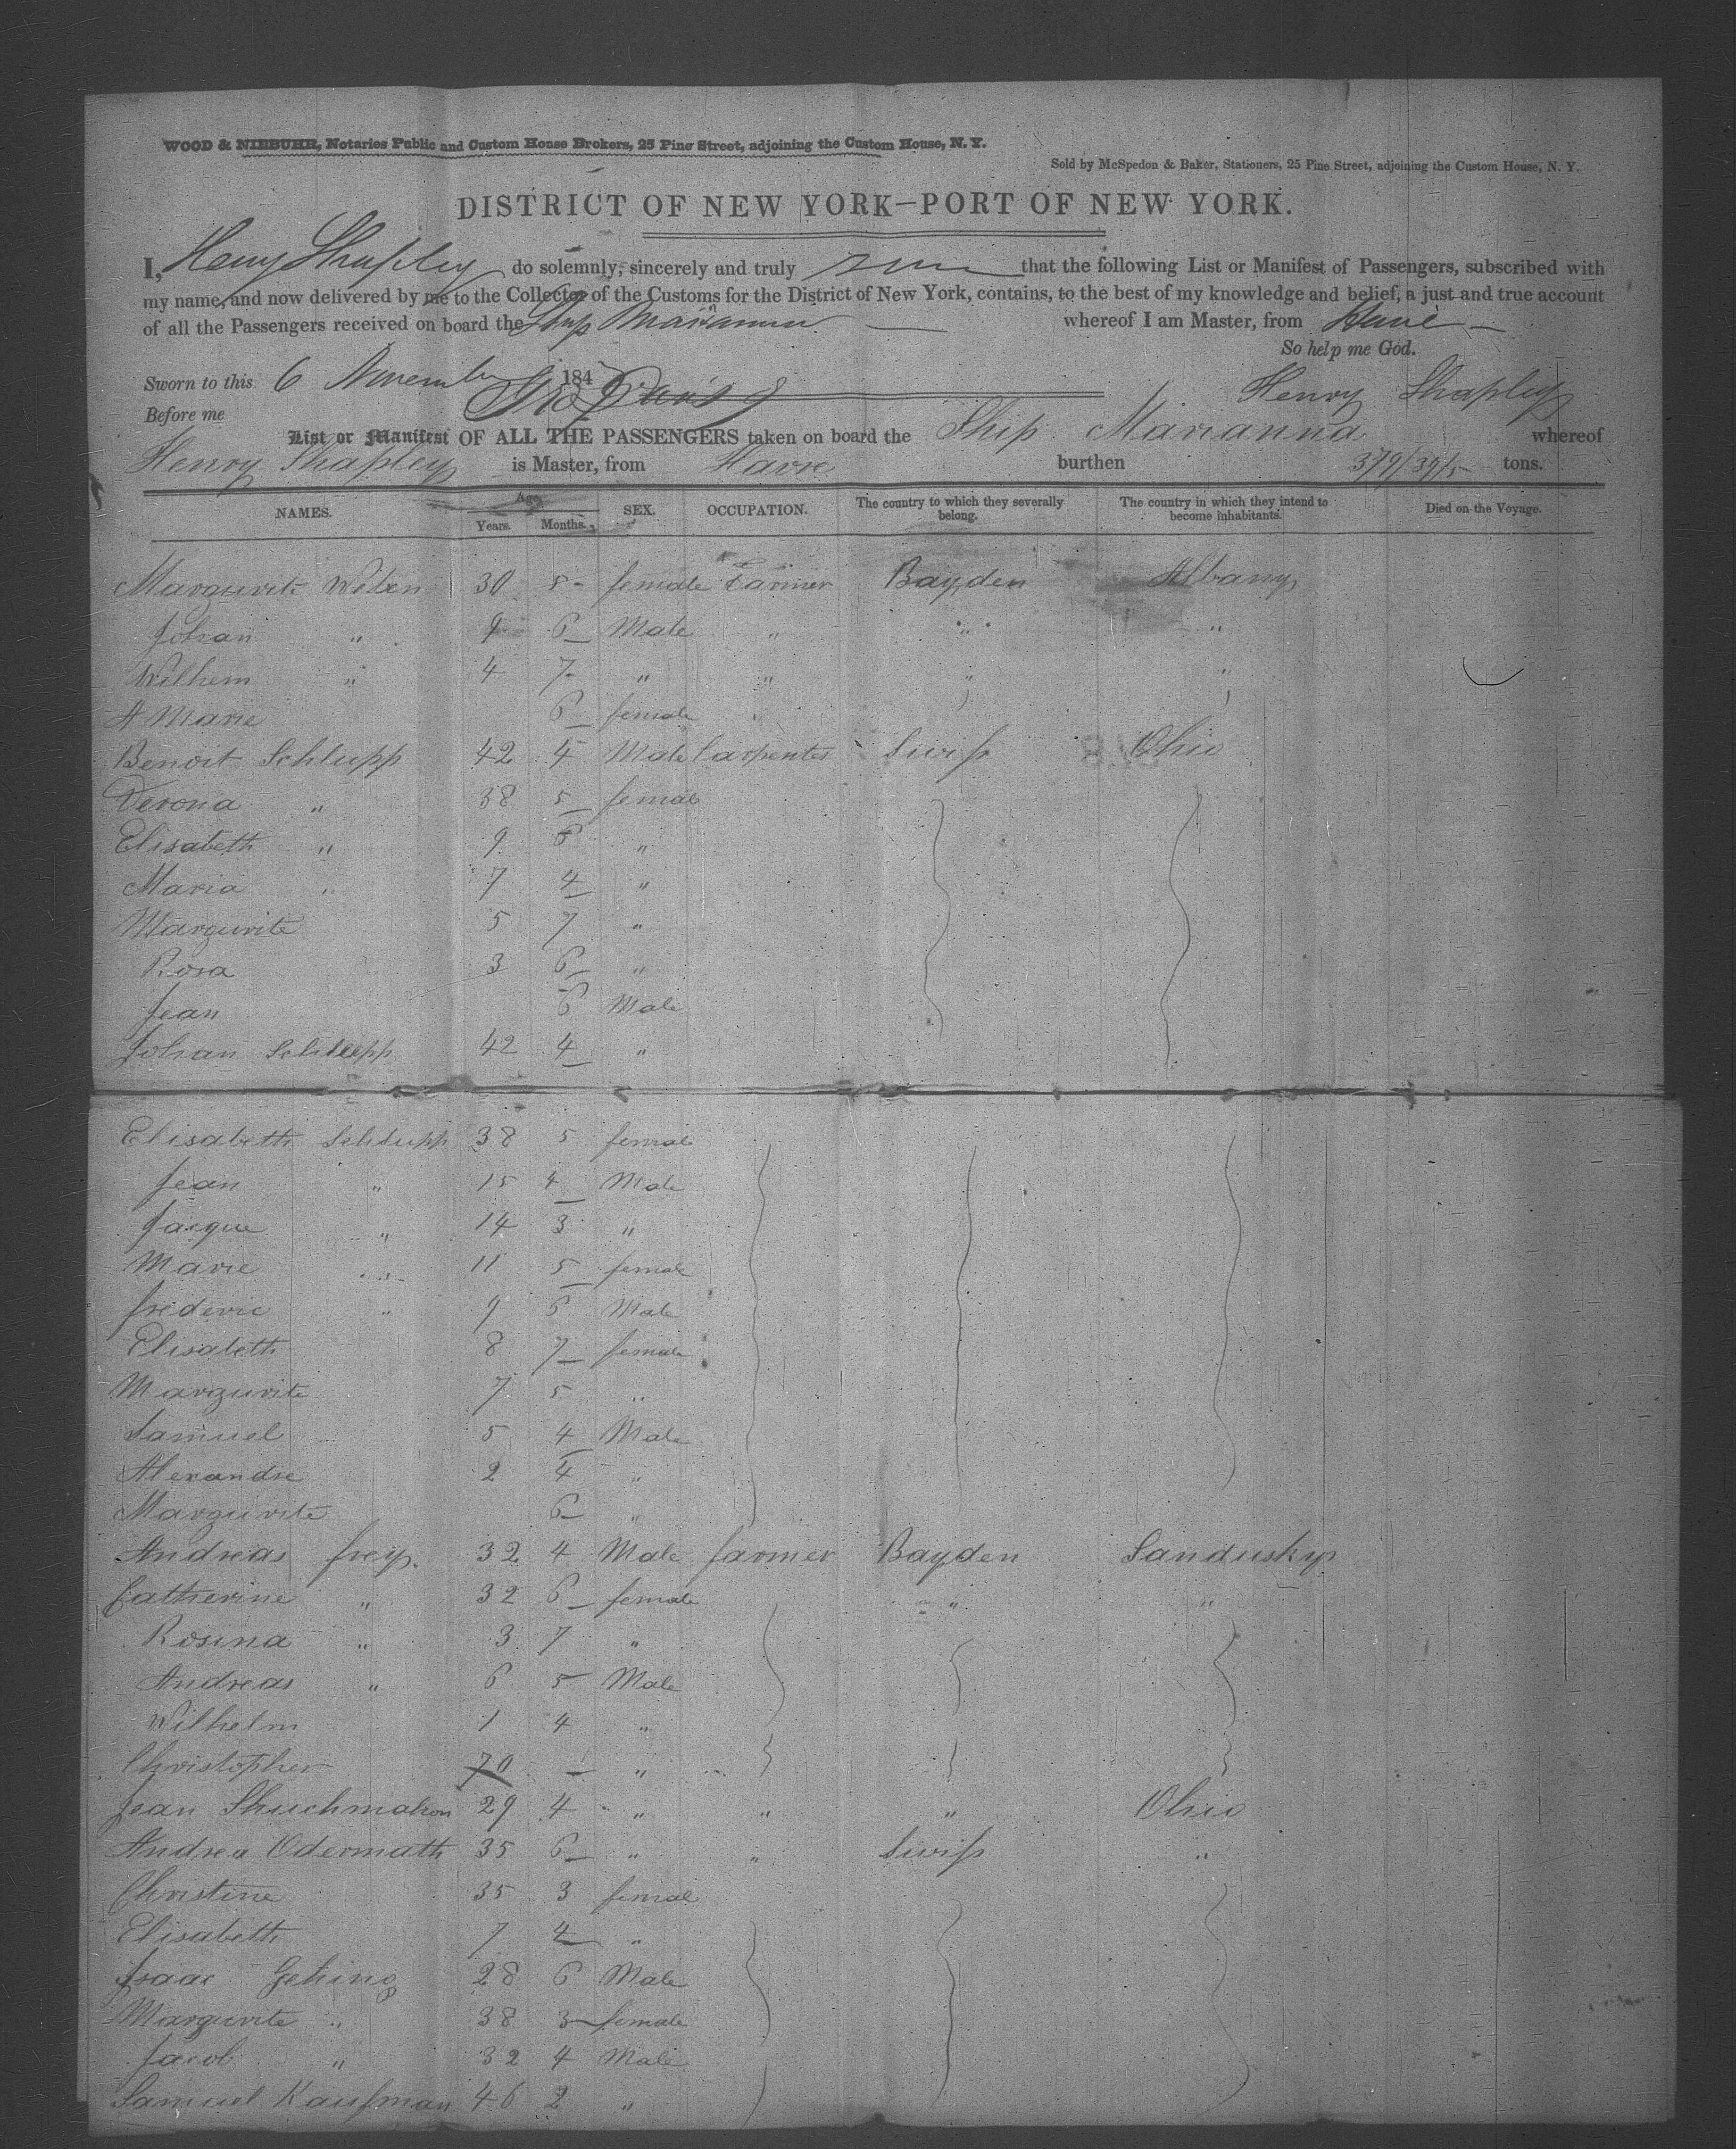 WOOD & NIEBUHR, Notaries Public and Custom House Brokers, 25 Pine Street, adjoining the Custom House, N. Y.
Sold by McSpedon & Baker, Stationers, 25 Pine Street, adjoining the Custom House, N. Y.
DISTRICT OF NEW YORK—PORT OF NEW YORK.
I, Henry Shapley do solemnly, sincerely and truly that the following List or Manifest of Passengers, subscribed with
my name, and now delivered by me to the Collector of the Customs for the District of New York, contains, to the best of my knowledge and belief, a just and true account
of all the Passengers received on board the Ship Marianna whereof I am Master, from Havre
So help me God.
Sworn to this 6 November 184
Henry Shapley
Before me
List or Manifest OF ALL THE PASSENGERS taken on board the Ship Marianna whereof
Henry Shapley is Master, from Havre burthen tons.
NAMES. Age. Years. Months. SEX. OCCUPATION. The country to which they severally belong. The country in which they intend to become inhabitants. Died on the Voyage.
Margurite 30 5 female farmer Bayden Albany
Johan " 9 6 Male " " "
Wilhem " 4 7 " " " "
A Marie 6 female "
Benoit Schlupp 42 4 Male Carpenter Swiss Ohio
Verona " 38 5 female
Elisabeth " 9 6 "
Maria " 7 4 "
Margurite 5 7 "
Rosa 3 6 "
Jean 6 Male
Johan Schlupp 42 4 "
Elisabeth Schlupp 38 5 female
Jean " 15 4 Male
Jacque " 14 3 "
Marie " 11 5 female
frederic " 9 6 Male
Elisabeth 8 7 female
Margurite 7 5 "
Samuel 5 4 Male
Alexandre 2 4 "
Margurite 6 "
Andreas frey. 32 4 Male farmer Bayden Sandusky
Catherine " 32 6 female " "
Rosina " 3 7 "
Andreas " 6 5 Male
Wilhelm 1 4 "
Christopher 70 "
Jean 29 4 " " " Ohio
Andrea Odermath 35 6 " " Swiss "
Christine 35 3 female
Elisabeth 7 4 "
Isaac Gehing 28 6 Male
Margurite " 38 3 female
Jacob " 32 4 Male
Samuel Kaufman 46 2 "